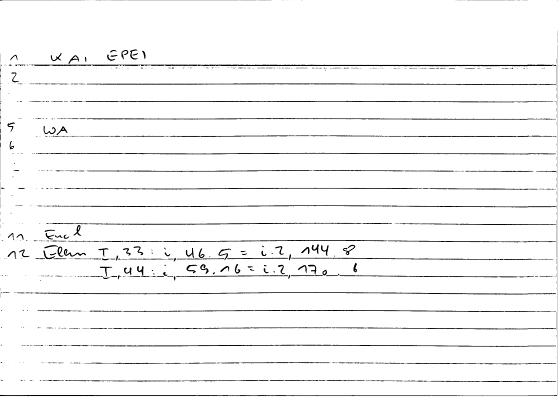 1 KAI EPEI
2
5 WA
6
11 Eucl
12 Elem I, 33 : i, 46. 5 = i. 2, 144 8
I, 44 : i, 59. 16 = i. 2, 170 6